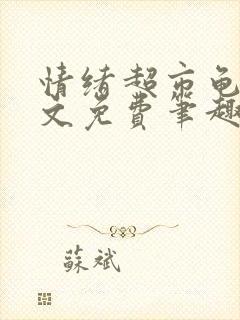 情绪超市龟
文免费笔趣
蘇斌